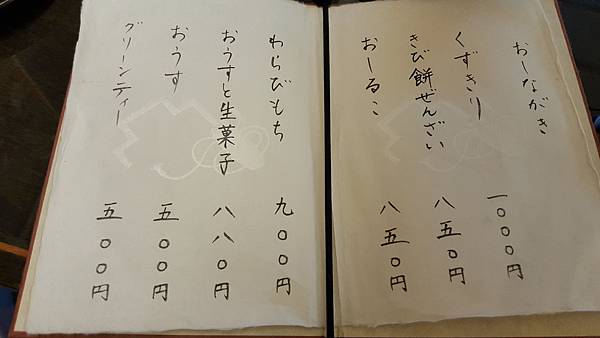 おーながき
くずきり 一〇〇〇円
きび餅ぜんざい 八五〇円
おーるこ 八五〇円
わらびもち 九〇〇円
おうすと生菓子 八八〇円
おうす 五〇〇円
グリーンティー 五〇〇円